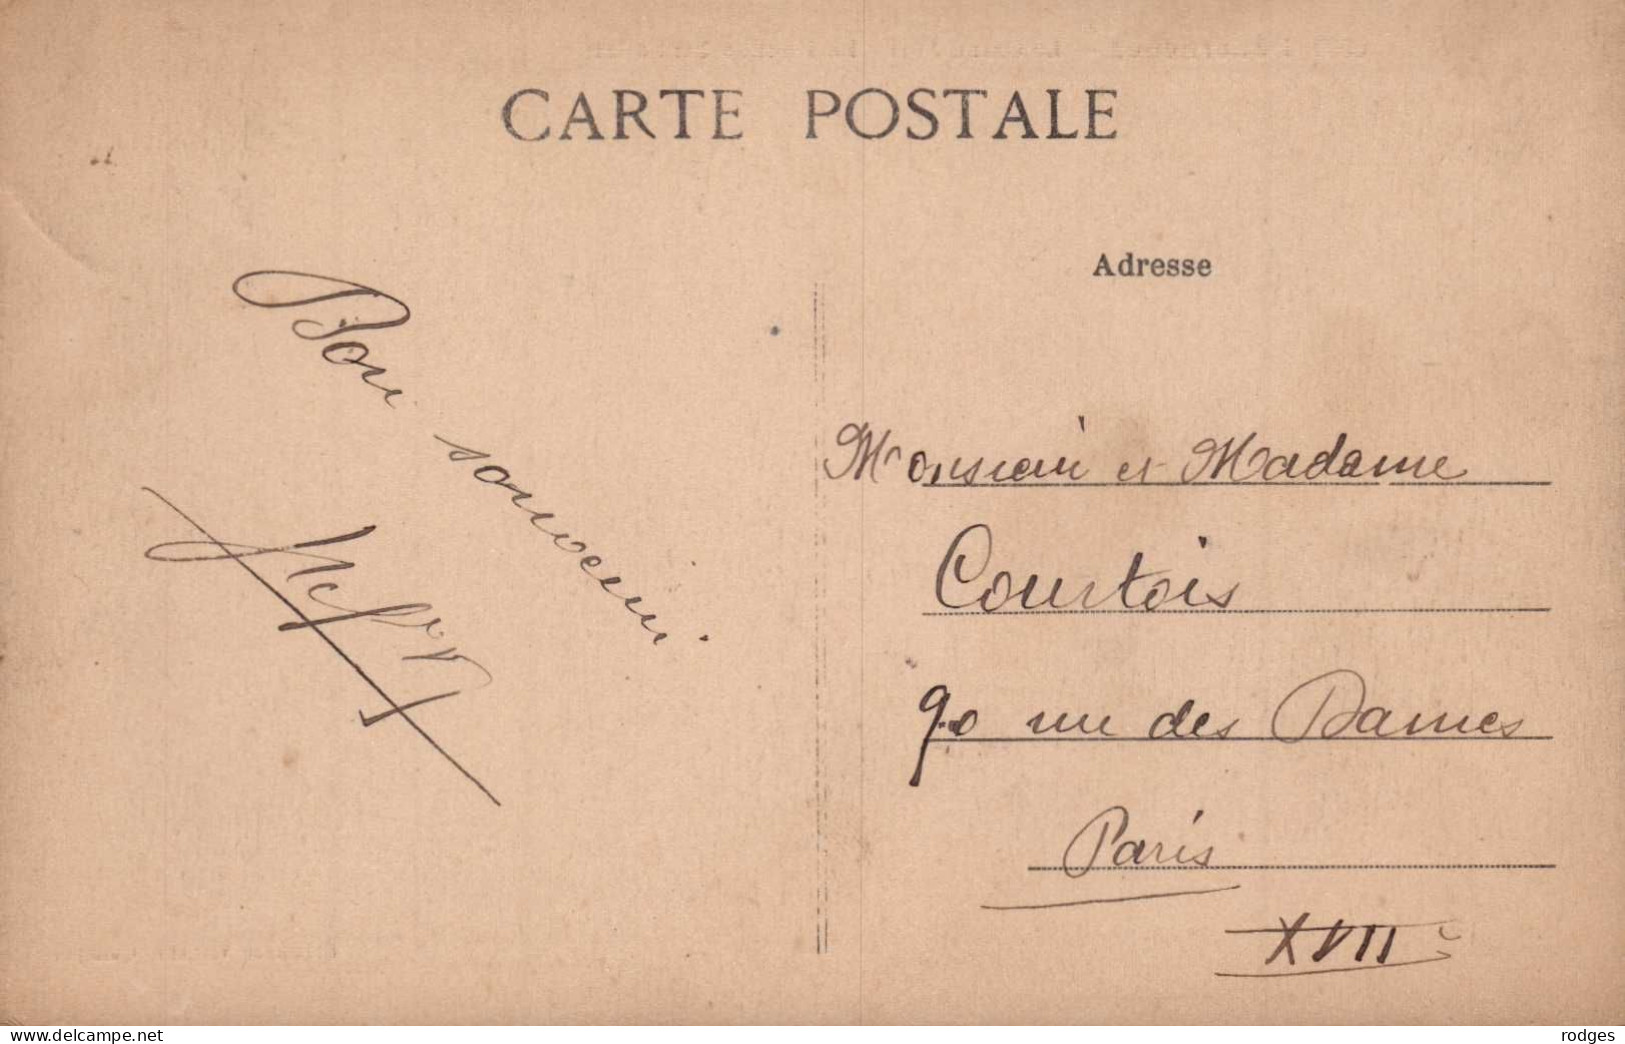 CARTE POSTALE
Adresse
Bon souvenir
Monsieur et Madame
Courtois
90 rue des Dames
Paris
XVII e
delcampe.net
rodges